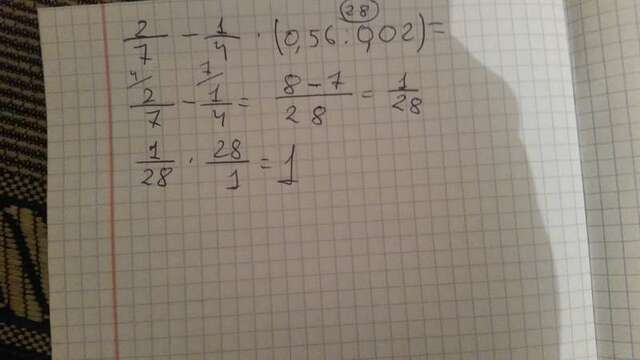 28
2/7 - 1/4 · (0,56 : 0,02) =
4/ 7/
2/7 - 1/4 = 8-7/28 = 1/28
1/28 · 28/1 = 1